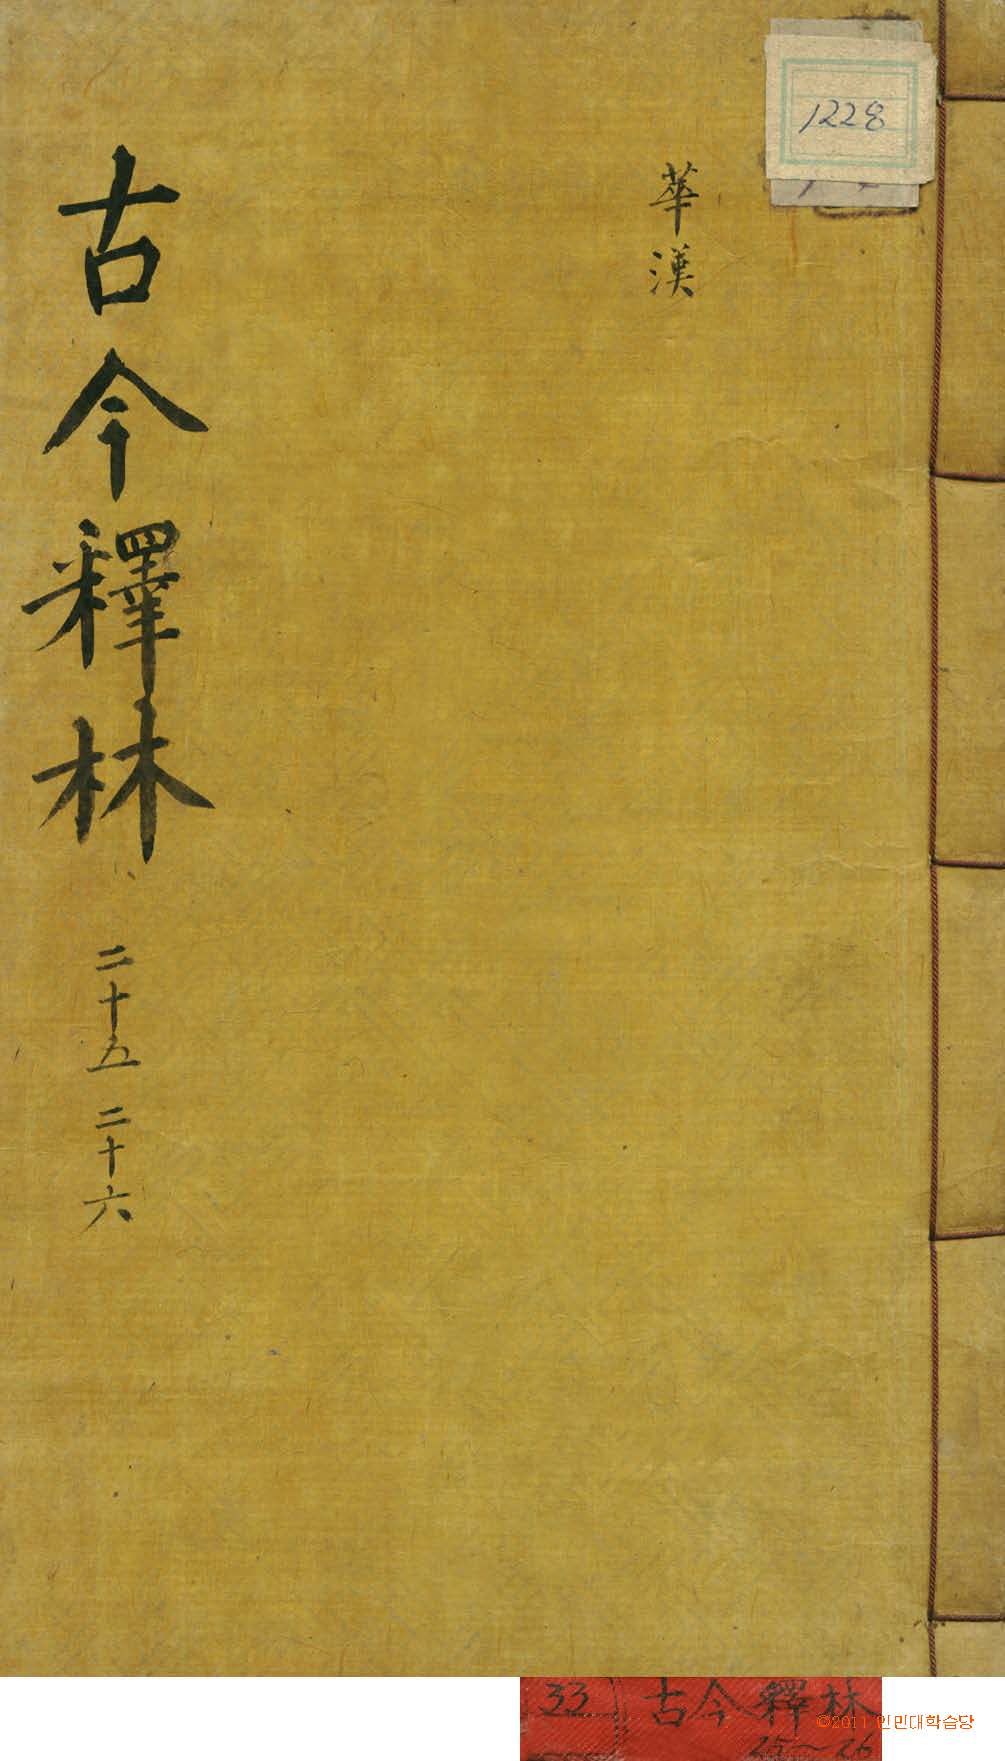 1228
華漢
古今釋林
二十五 二十六
33 古今釋林
25~26
©2011 인민대학습당